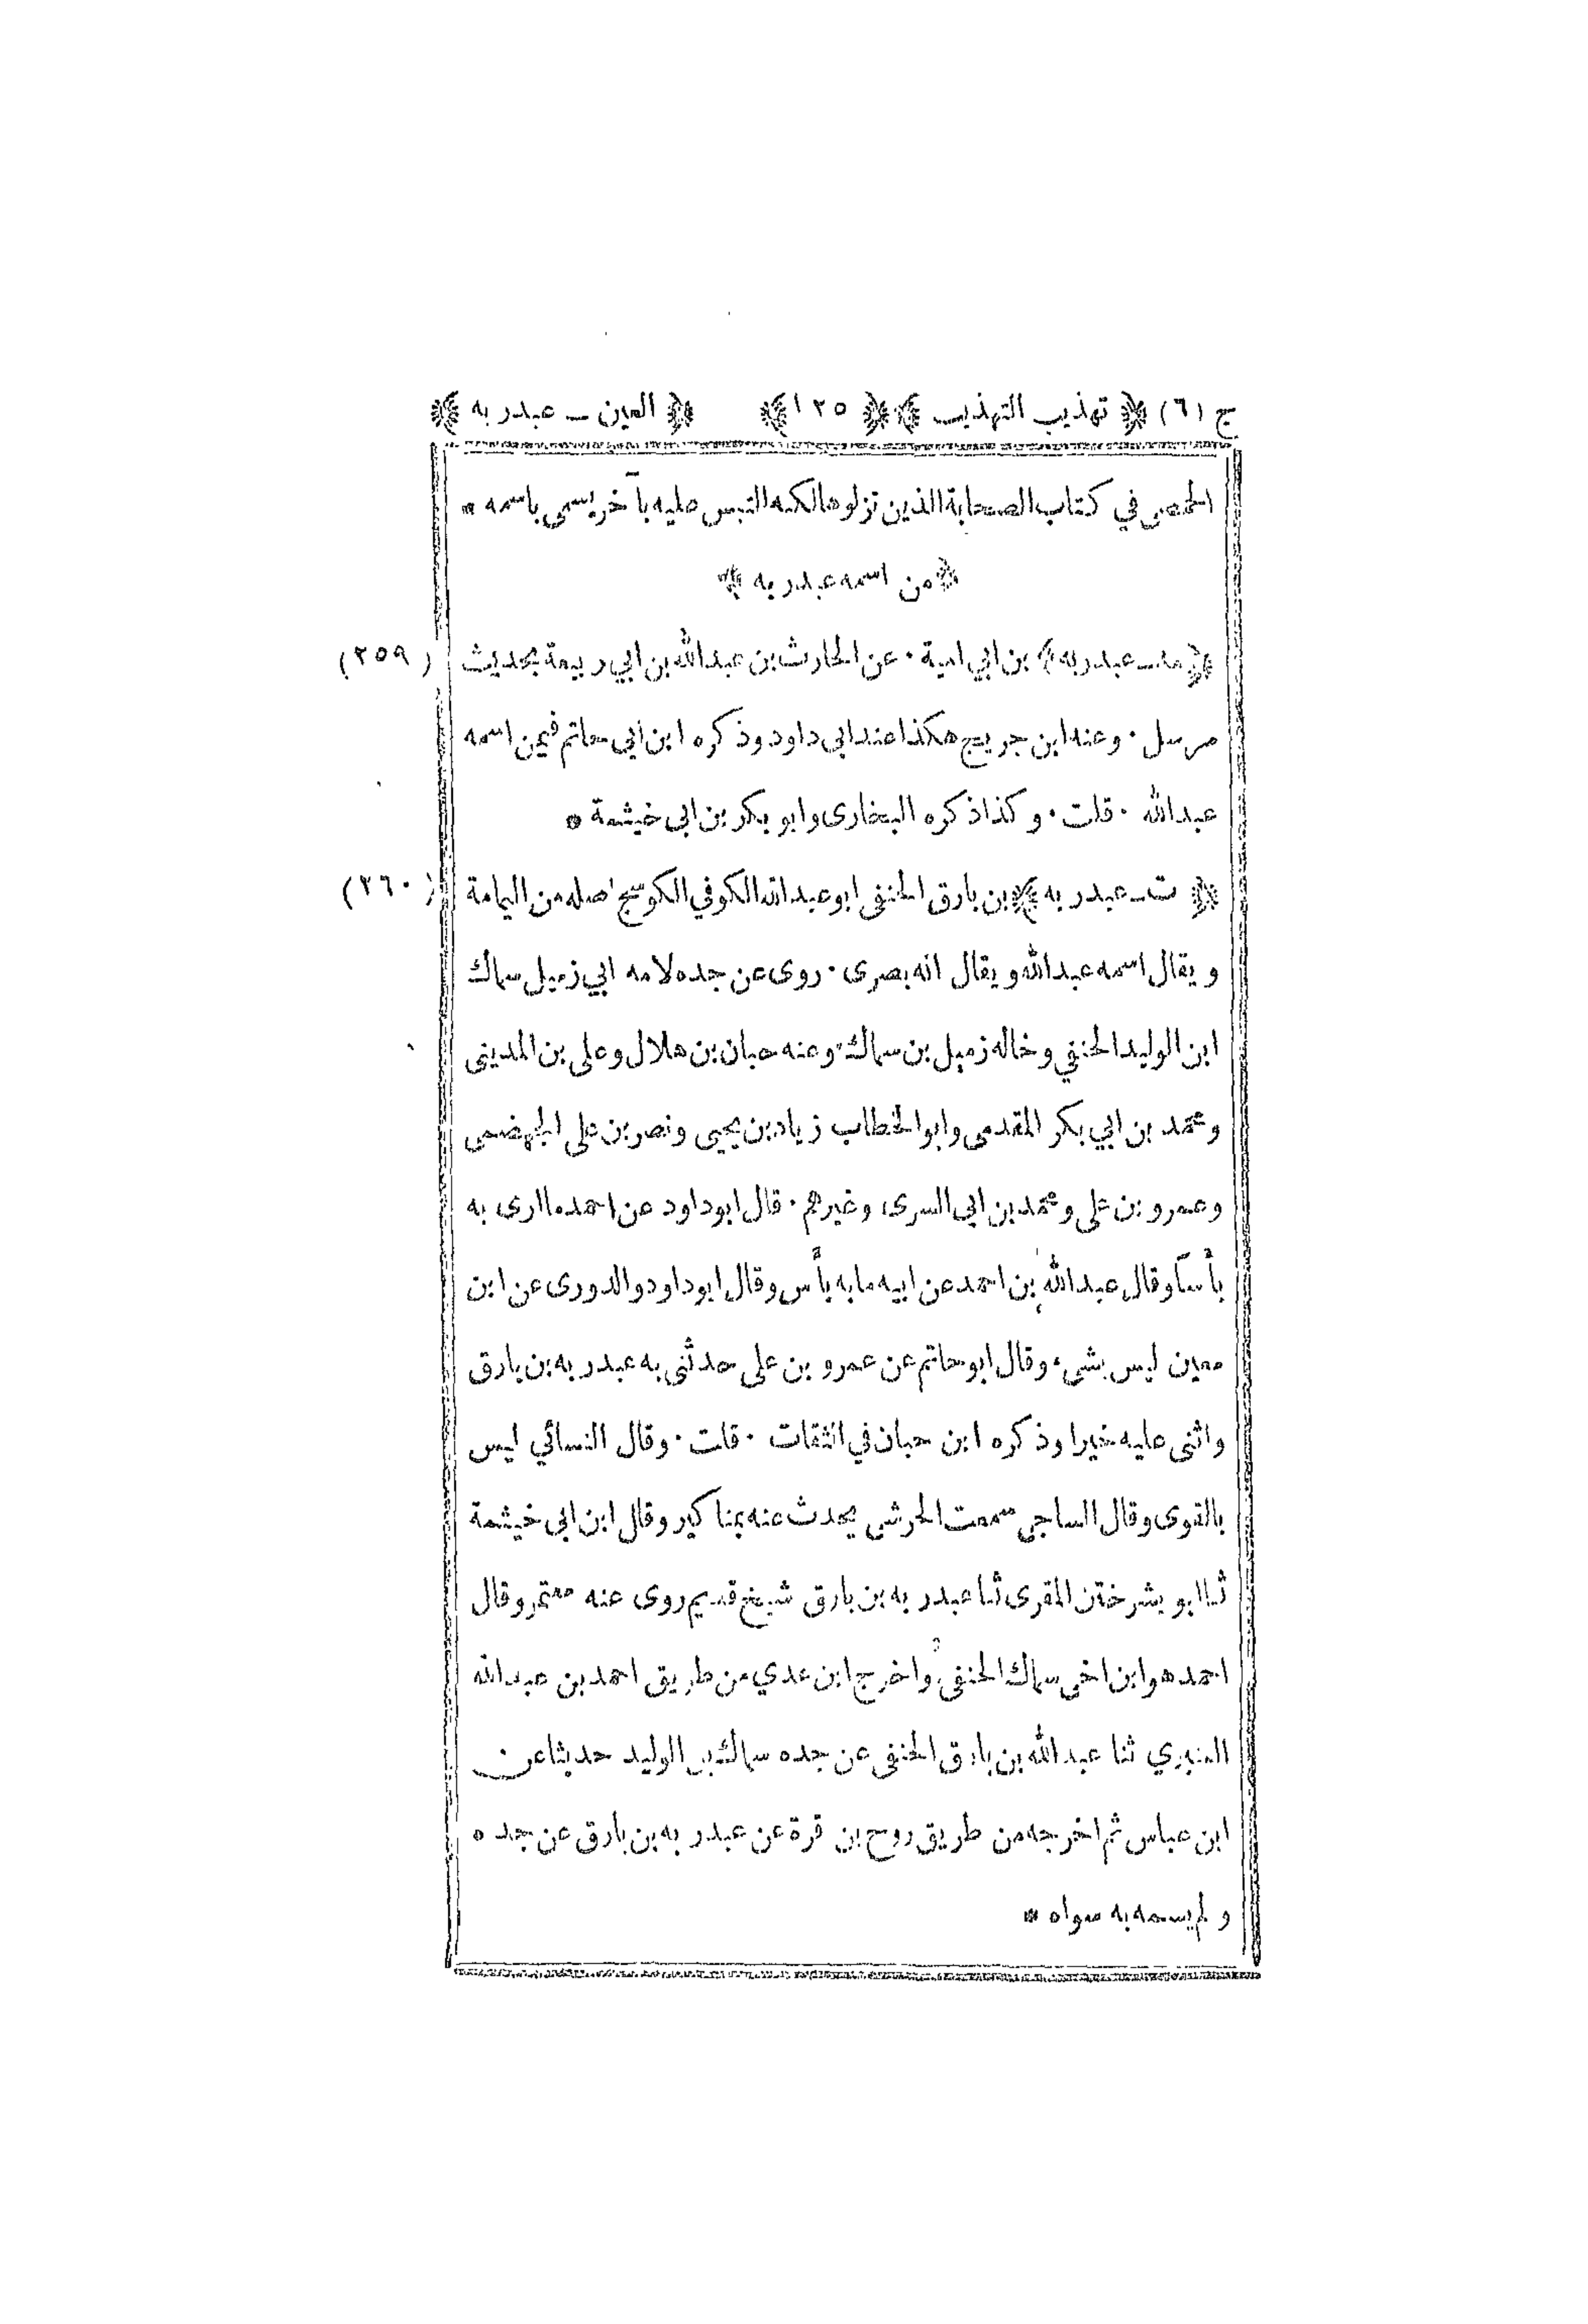 ج (٦) ﴿ تهذيب التهذيب ﴾ ﴿ ١٢٥ ﴾ ﴿ العين ـ عبدربه ﴾
الحمصى في كتاب الصحابة الذين نزلوها لكنه التبس عليه بآخر يسمى باسمه *
﴿ من اسمه عبدربه ﴾
﴿ مد ـ عبدربه ﴾ بن ابي امية ٠ عن الحارث بن عبد الله بن ابي ربيعة بحديث (٢٥٩)
مرسل ٠ وعنه ابن جريج هكذا عند ابى داود وذكره ابن ابي حاتم فيمن اسمه
عبدالله ٠ قلت ٠ وكذا ذكره البخارى وابو بكر بن ابى خيثمة *
﴿ ت ـ عبدربه ﴾ بن بارق الحنفى ابو عبد الله الكوفي الكوسج اصله من اليمامة (٢٦٠)
ويقال اسمه عبدالله ويقال انه بصرى ٠ روى عن جده لامه ابي زميل سماك
ابن الوليد الحنفي وخاله زميل بن سماك ٠ وعنه حبان بن هلال وعلى بن المدينى
ومحمد بن ابي بكر المقدمى وابو الخطاب زياد بن يحيى ونصر بن على الجهضمى
وعمرو بن على ومحمد بن ابي السرى وغيرهم ٠ قال ابو داود عن احمد ما ارى به
بأسا وقال عبد الله بن احمد عن ابيه ما به بأس وقال ابوداود والدورى عن ابن
معين ليس بشىء وقال ابو حاتم عن عمرو بن على حدثنى به عبدربه بن بارق
واثنى عليه خيرا وذكره ابن حبان في الثقات ٠ قلت ٠ وقال النسائي ليس
بالقوى وقال الساجى سمعت الحرشى يحدث عنه بمناكير وقال ابن ابى خيثمة
ثنا ابو بشر ختن المقرى ثنا عبدربه بن بارق شيخ قديم روى عنه معتمر وقال
احمد هو ابن اخى سماك الحنفى واخرج ابن عدي من طريق احمد بن عبد الله
العنبري ثنا عبد الله بن بارق الحنفى عن جده سماك بن الوليد حديثا عن
ابن عباس ثم اخرجه من طريق روح بن قرة عن عبدربه بن بارق عن جده
ولم يسمه به سواه *